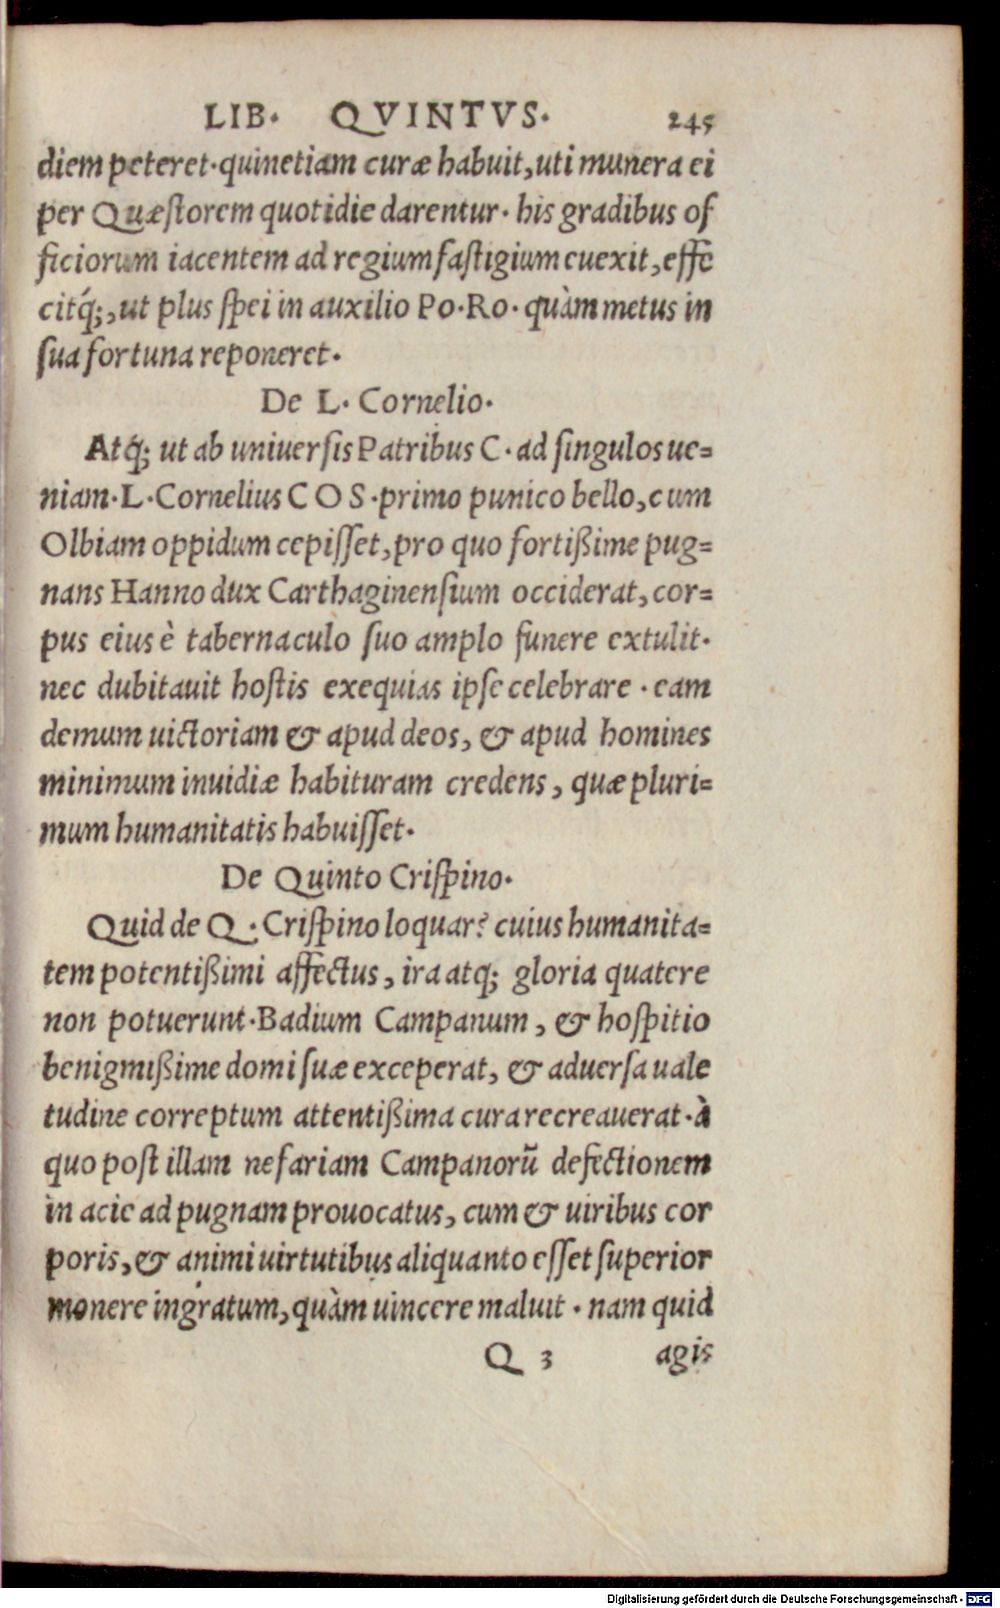 LIB. QVINTVS. 245
diem peteret. quinetiam curæ habuit, uti munera ei
per Quæstorem quotidie darentur. his gradibus of
ficiorum iacentem ad regium fastigium euexit, effe
citq́;, ut plus spei in auxilio Po. Ro. quàm metus in
sua fortuna reponeret.
De L. Cornelio.
Atq́; ut ab uniuersis Patribus C. ad singulos ue=
niam. L. Cornelius COS. primo punico bello, cum
Olbiam oppidum cepisset, pro quo fortißime pug=
nans Hanno dux Carthaginensium occiderat, cor=
pus eius è tabernaculo suo amplo funere extulit.
nec dubitauit hostis exequias ipse celebrare. eam
demum uictoriam & apud deos, & apud homines
minimum inuidiæ habituram credens, quæ pluri=
mum humanitatis habuisset.
De Quinto Crispino.
Quid de Q. Crispino loquar? cuius humanita=
tem potentißimi affectus, ira atq; gloria quatere
non potuerunt. Badium Campanum, & hospitio
benignißime domi suæ exceperat, & aduersa uale
tudine correptum attentißima cura recreauerat. à
quo post illam nefariam Campanorũ defectionem
in acie ad pugnam prouocatus, cum & uiribus cor
poris, & animi uirtutibus aliquanto esset superior
monere ingratum, quàm uincere maluit. nam quid
Q 3 agis
Digitalisierung gefördert durch die Deutsche Forschungsgemeinschaft - DFG